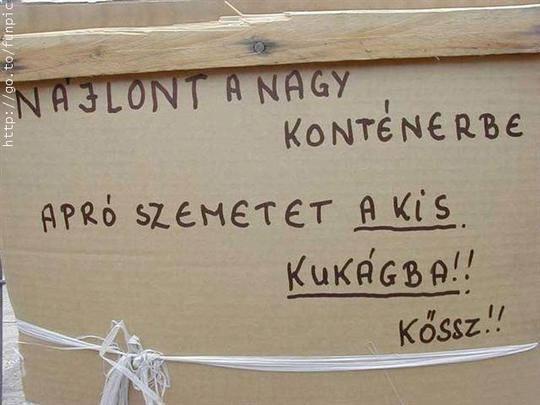 NÁJLONT A NAGY
KONTÉNERBE
APRÓ SZEMETET A KIS
KUKÁGBA!!
KŐSSZ!!
http://go.to/funpic